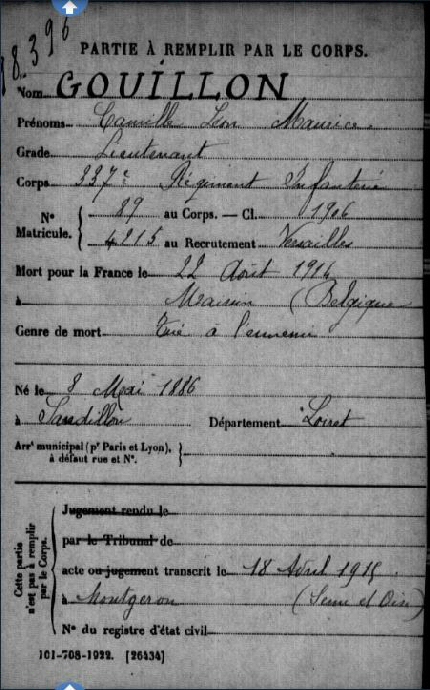 18.396
PARTIE À REMPLIR PAR LE CORPS.
Nom GOUILLON
Prénoms Camille Léon Maurice.
Grade Lieutenant
Corps 337e Régiment Infanterie
N° Matricule. { 89 au Corps. — Cl. 1906
4215 au Recrutement Versailles
Mort pour la France le 22 Août 1914
à (Belgique
Genre de mort Tué à l'ennemi
Né le 8 Mai 1886
à Sandillon Département Loiret
Arrt municipal (pr Paris et Lyon), à défaut rue et N°. }
Cette partie n'est pas à remplir par le Corps.
Jugement rendu le
par le Tribunal de
acte ou jugement transcrit le 18 Avril 1915
à Montgeron (Seine et Oise)
N° du registre d'état civil
101-708-1922. [26434]